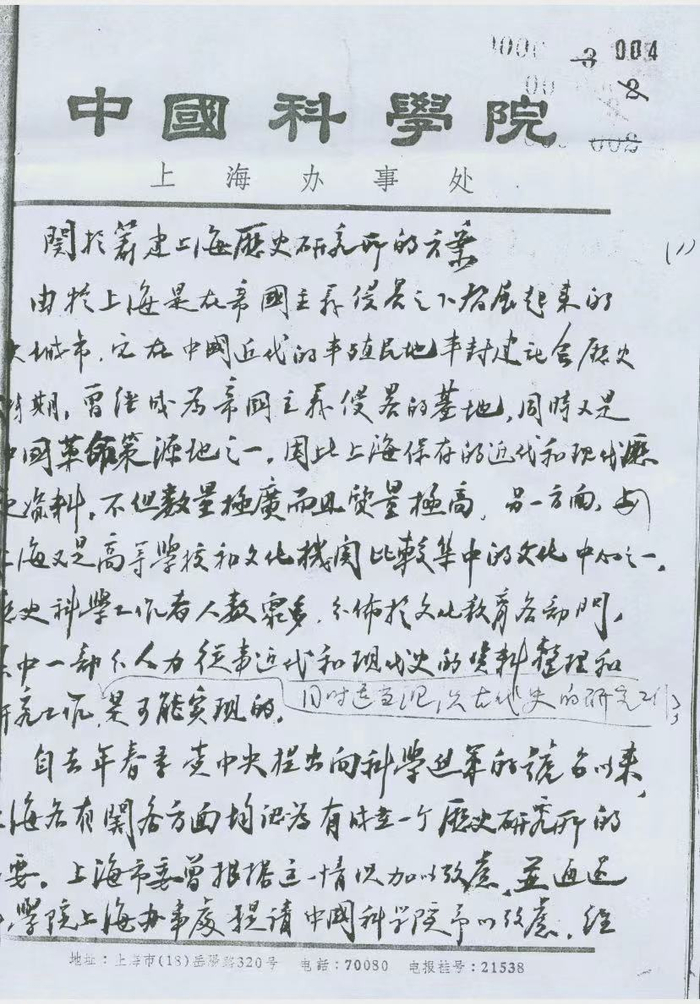 004
中國科學院
上海办事处
関於籌建上海歷史研究所的方案
(1)
由於上海是在帝國主義侵畧之下發展起來的
大城市，它在中國近代的半殖民地半封建社会歷史
時期，曾經成為帝國主義侵畧的基地，同時又是
中国革命策源地之一，因此上海保存的近代和现代歷
史資料，不但数量極廣而且质量極高，另一方面，
上海又是高等學校和文化機関比較集中的文化中心之一，
歷史科學工作者人数衆多，分佈於文化教育各部門，
集中一部分人力從事近代和现代史的資料整理和
研究工作，是可能实现的，
同时适当地 古代史的研究工作
自去年春季党中央提出向科學進軍的號召以來，
上海各有関各方面均认為有成立一个歷史研究所的
要。上海市委曾根据这一情况加以攷慮，並通过
學院上海办事處提請中國科学院予以攷慮，经
地址：上海市(18)岳陽路320号 电話：70080 电报挂号：21538